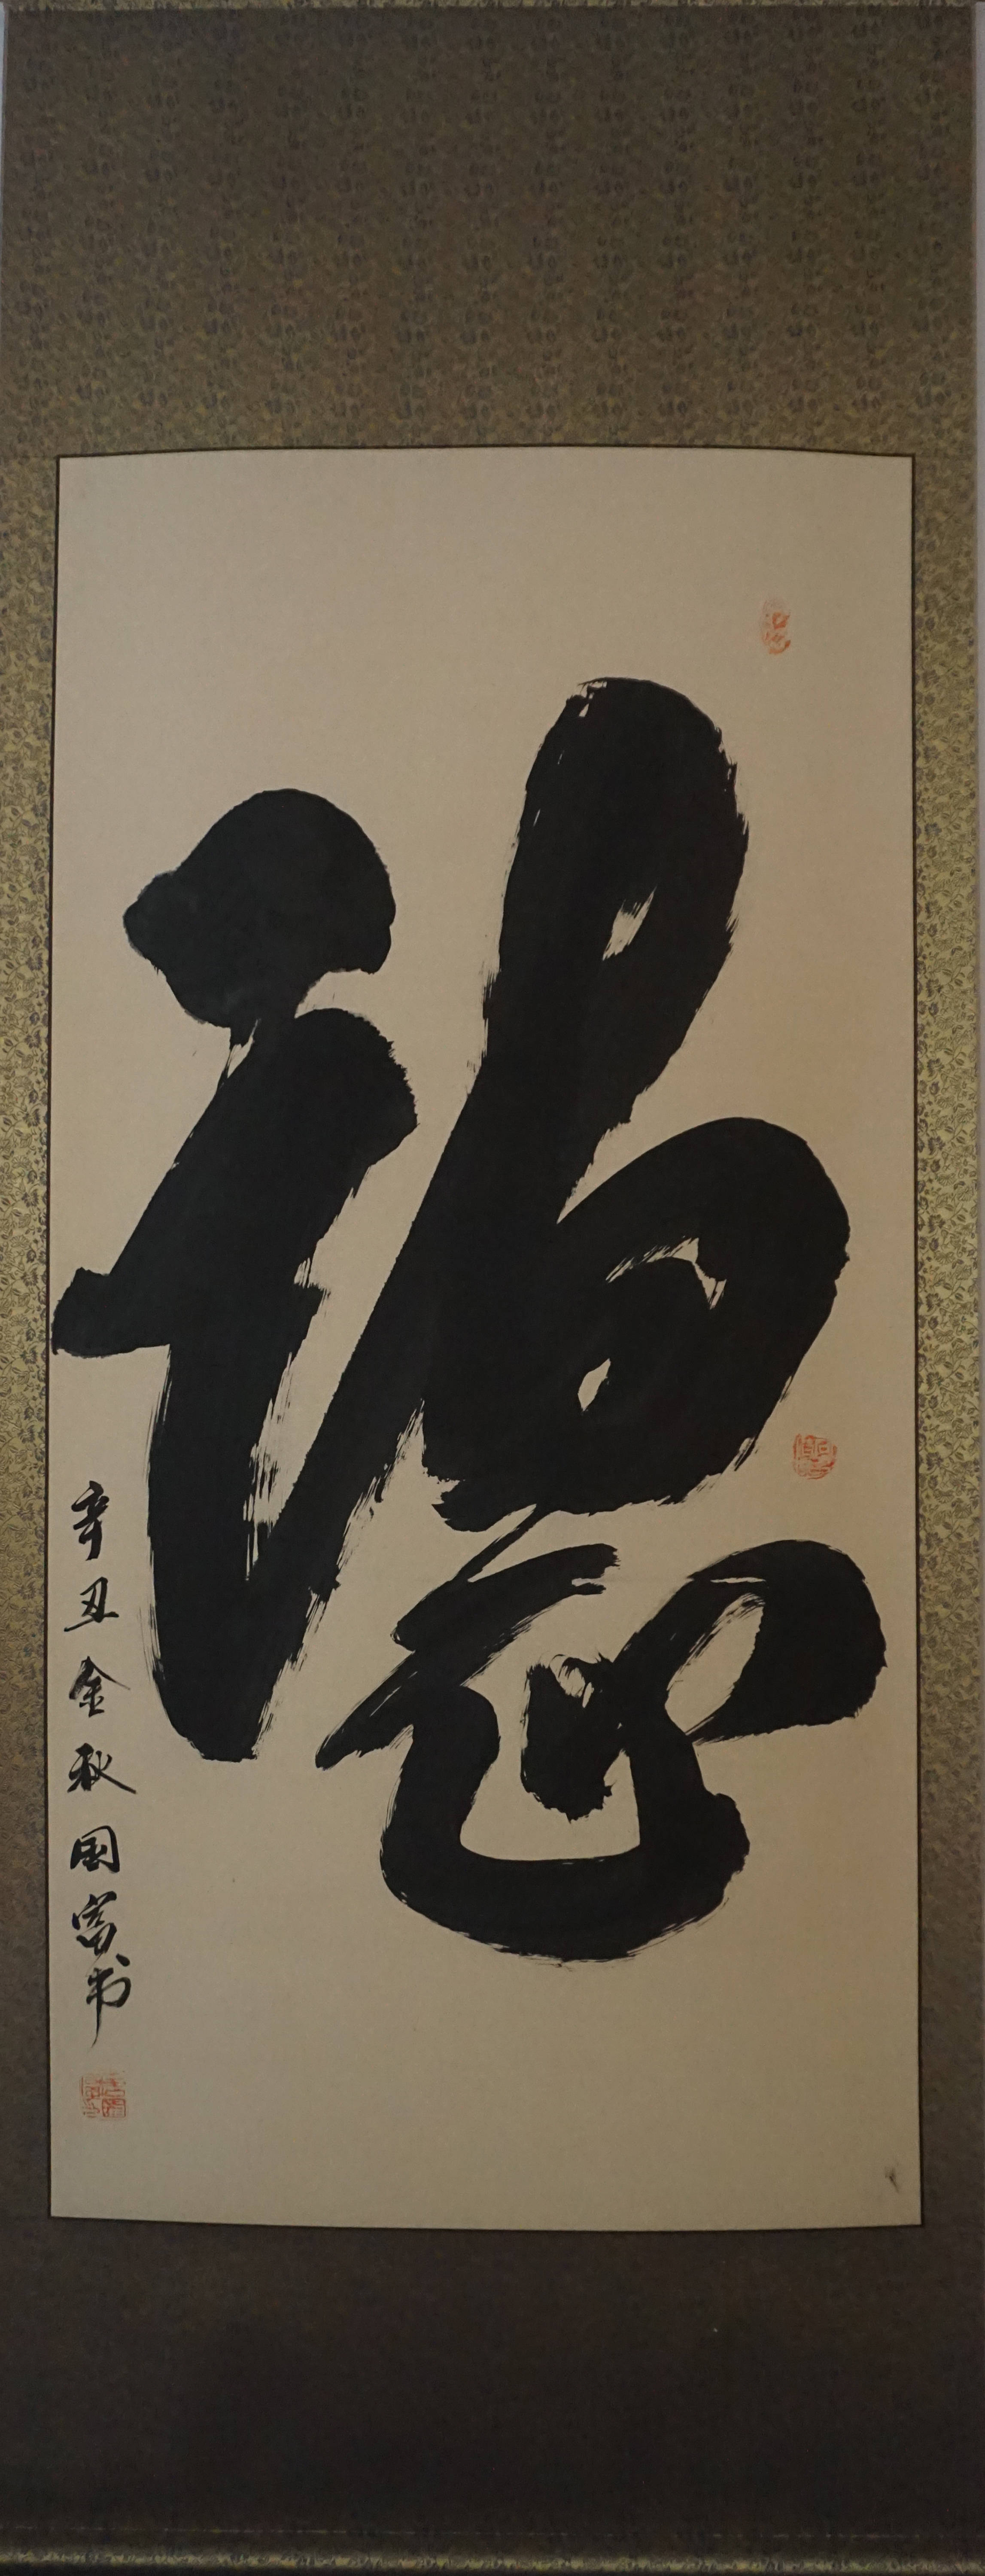 福
辛丑金秋国富书